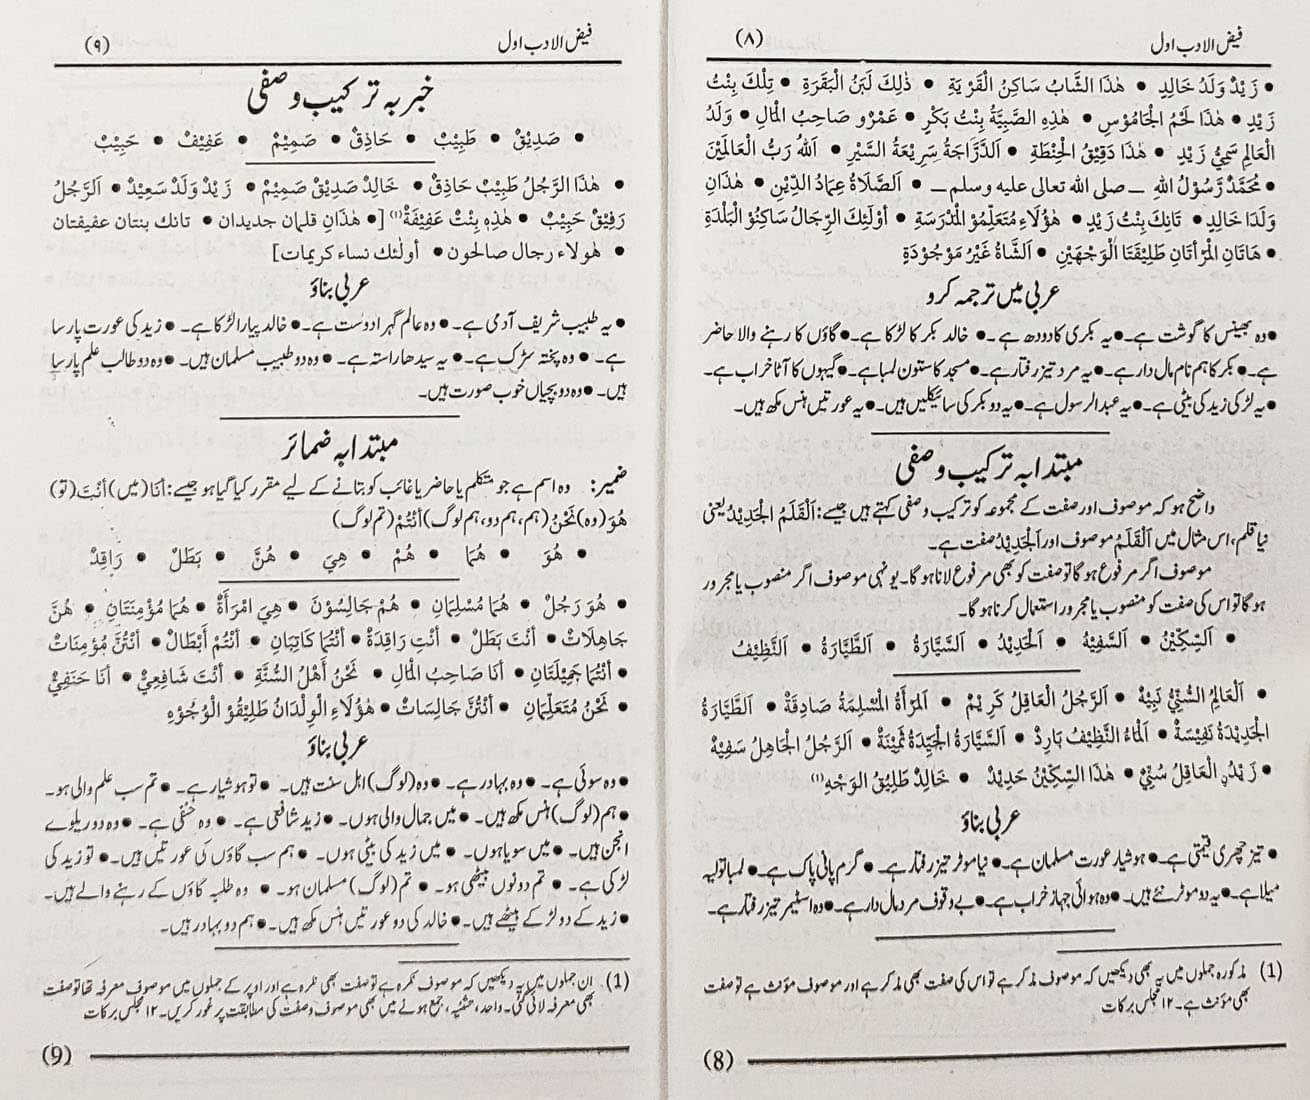 فیض الادب اول (۸)
• زَيْدٌ وَلَدُ خَالِدٍ • هٰذَا الشَّابُ سَاكِنُ الْقَرْيَةِ • ذٰلِكَ لَبَنُ الْبَقَرَةِ • تِلْكَ بِنْتُ
زَيْدٍ • هٰذَا لَحْمُ الْجَامُوْسِ • هٰذِهِ الصَّبِيَّةُ بِنْتُ بَكْرٍ • عَمْرٌو صَاحِبُ الْمَالِ • وَلَدُ
الْعَالِمِ سَمِيُّ زَيْدٍ • هٰذَا دَقِيْقُ الْحِنْطَةِ • اَلدَّرَّاجَةُ سَرِيْعَةُ السَّيْرِ • اَللهُ رَبُّ الْعَالَمِيْنَ
• مُحَمَّدٌ رَّسُوْلُ اللهِ — صلى الله تعالى عليه وسلم — • اَلصَّلَاةُ عِمَادُ الدِّيْنِ • هٰذَانِ
وَلَدَا خَالِدٍ • تَانِكَ بِنْتُ زَيْدٍ • هٰؤُلَاءِ مُتَعَلِّمُوْ الْمَدْرَسَةِ • أُوْلٰئِكَ الرِّجَالُ سَاكِنُوْ الْبَلْدَةِ
• هَاتَانِ الْمَرْأَتَانِ طَلِيْقَتَا الْوَجْهَيْنِ • اَلشَّاةُ غَيْرُ مَوْجُوْدَةٍ
عربی میں ترجمہ کرو
• وہ بھینس کا گوشت ہے۔ • یہ بکری کا دودھ ہے۔ • خالد بکر کا لڑکا ہے۔ • گاؤں کا رہنے والا حاضر
ہے۔ • بکر کا ہم نام مال دار ہے۔ • یہ مرد تیز رفتار ہے۔ • مسجد کا ستون لمبا ہے۔ • گیہوں کا آٹا خراب ہے۔
• یہ لڑکی زید کی بیٹی ہے۔ • یہ عبد الرسول ہے۔ • یہ دو بکر کی سائیکلیں ہیں۔ • یہ عورتیں ہنس مکھ ہیں۔
مبتدا بہ ترکیب وصفی
واضح ہو کہ موصوف اور صفت کے مجموعہ کو ترکیب وصفی کہتے ہیں جیسے: اَلْقَلَمُ الْجَدِيْدُ یعنی
نیا قلم، اس مثال میں اَلْقَلَمُ موصوف اور اَلْجَدِيْدُ صفت ہے۔
موصوف اگر مرفوع ہوگا تو صفت کو بھی مرفوع لانا ہوگا۔ یونہی موصوف اگر منصوب یا مجرور
ہوگا تو اس کی صفت کو منصوب یا مجرور استعمال کرنا ہوگا۔
• اَلسِّكِّيْنُ • اَلسَّفِيْهُ • اَلْحَدِيْدُ • اَلسَّيَّارَةُ • اَلطَّيَّارَةُ • اَلنَّظِيْفُ
• اَلْعَالِمُ السُّنِّيُّ نَبِيْهٌ • اَلرَّجُلُ الْعَاقِلُ كَرِيْمٌ • اَلْمَرْأَةُ الْمُسْلِمَةُ صَادِقَةٌ • اَلطَّيَّارَةُ
الْجَدِيْدَةُ نَفِيْسَةٌ • اَلْمَاءُ النَّظِيْفُ بَارِدٌ • اَلسَّيَّارَةُ الْجَيِّدَةُ ثَمِيْنَةٌ • اَلرَّجُلُ الْجَاهِلُ سَفِيْهٌ
• زَيْدُ نِ الْعَاقِلُ سُنِّيٌّ • هٰذَا السِّكِّيْنُ حَدِيْدٌ • خَالِدٌ طَلِيْقُ الْوَجْهِ (۱)
عربی بناؤ
• تیز چھری قیمتی ہے۔ • ہوشیار عورت مسلمان ہے۔ • نیا موٹر تیز رفتار ہے۔ • گرم پانی پاک ہے۔ • لمبا تولیہ
میلا ہے۔ • یہ دو موٹر نئے ہیں۔ • وہ ہوائی جہاز خراب ہے۔ • بے وقوف مرد مال دار ہے۔ • وہ اسٹیمر تیز رفتار ہے۔
(1) مذکورہ جملوں میں یہ بھی دیکھیں کہ موصوف مذکر ہے تو اس کی صفت بھی مذکر ہے اور موصوف مؤنث ہے تو صفت
بھی مؤنث ہے۔ ۱۲ مجلس برکات
(8)
فیض الادب اول (۹)
خبر بہ ترکیب وصفی
• صَدِيْقٌ • طَبِيْبٌ • حَاذِقٌ • صَمِيْمٌ • عَفِيْفٌ • حَبِيْبٌ
• هٰذَا الرَّجُلُ طَبِيْبٌ حَاذِقٌ • خَالِدٌ صَدِيْقٌ صَمِيْمٌ • زَيْدٌ وَلَدٌ سَعِيْدٌ • اَلرَّجُلُ
رَفِيْقٌ حَبِيْبٌ • هٰذِهٖ بِنْتٌ عَفِيْفَةٌ (۱) [• هٰذَانِ قلمان جديدان • تانك بنتان عفيفتان
• هٰولاء رجال صالحون • أولٰئك نساء كريمات]
عربی بناؤ
• یہ طبیب شریف آدمی ہے۔ • وہ عالم گہرا دوست ہے۔ • خالد پیارا لڑکا ہے۔ • زید کی عورت پارسا
ہے۔ • وہ پختہ سڑک ہے۔ • یہ سیدھا راستہ ہے۔ • وہ دو طبیب مسلمان ہیں۔ • وہ دو طالب علم پارسا
ہیں۔ • وہ دو بچیاں خوب صورت ہیں۔
مبتدا بہ ضمائر
ضمیر: وہ اسم ہے جو متکلم یا حاضر یا غائب کو بتانے کے لیے مقرر کیا گیا ہو جیسے: اَنَا (میں) اَنْتَ (تو)
هُوَ (وہ) نَحْنُ (ہم، ہم دو، ہم لوگ) اَنْتُمْ (تم لوگ)
• هُوَ • هُمَا • هُمْ • هِيَ • هُنَّ • بَطَلٌ • رَاقِدٌ
• هُوَ رَجُلٌ • هُمَا مُسْلِمَانِ • هُمْ جَالِسُوْنَ • هِيَ امْرَأَةٌ • هُمَا مُؤْمِنَتَانِ • هُنَّ
جَاهِلَاتٌ • أَنْتَ بَطَلٌ • أَنْتِ رَاقِدَةٌ • أَنْتُمَا كَاتِبَانِ • أَنْتُمْ أَبْطَالٌ • أَنْتُنَّ مُؤْمِنَاتٌ
• أَنْتُمَا جَمِيْلَتَانِ • أَنَا صَاحِبُ الْمَالِ • نَحْنُ أَهْلُ السُّنَّةِ • أَنْتَ شَافِعِيٌّ • أَنَا حَنَفِيٌّ
• نَحْنُ مُتَعَلِّمَانِ • أَنْتُنَّ جَالِسَاتٌ • هٰؤُلَاءِ الْوِلْدَانُ طَلِيْقُوْ الْوُجُوْهِ
عربی بناؤ
• وہ سوئی ہے۔ • وہ بہادر ہے۔ • وہ (لوگ) اہل سنت ہیں۔ • تو ہوشیار ہے۔ • تم سب علم والی ہو۔
• ہم (لوگ) ہنس مکھ ہیں۔ • میں جمال والی ہوں۔ • زید شافعی ہے۔ • وہ حنفی ہے۔ • وہ دو ریلوے
انجن ہیں۔ • میں سویا ہوں۔ • میں زید کی بیٹی ہوں۔ • ہم سب گاؤں کی عورتیں ہیں۔ • تو زید کی
لڑکی ہے۔ • تم دونوں بیٹھی ہو۔ • تم (لوگ) مسلمان ہو۔ • وہ طلبہ گاؤں کے رہنے والے ہیں۔
• زید کے دو لڑکے بیٹھے ہیں۔ • خالد کی دو عورتیں ہنس مکھ ہیں۔ • ہم دو بہادر ہیں۔
(1) ان جملوں میں یہ دیکھیں کہ موصوف نکرہ ہے تو صفت بھی نکرہ ہے اور اوپر کے جملوں میں موصوف معرفہ تھا تو صفت
بھی معرفہ لائی گئی۔ واحد، تثنیہ، جمع ہونے میں بھی موصوف و صفت کی مطابقت پر غور کریں۔ ۱۲ مجلس برکات
(9)